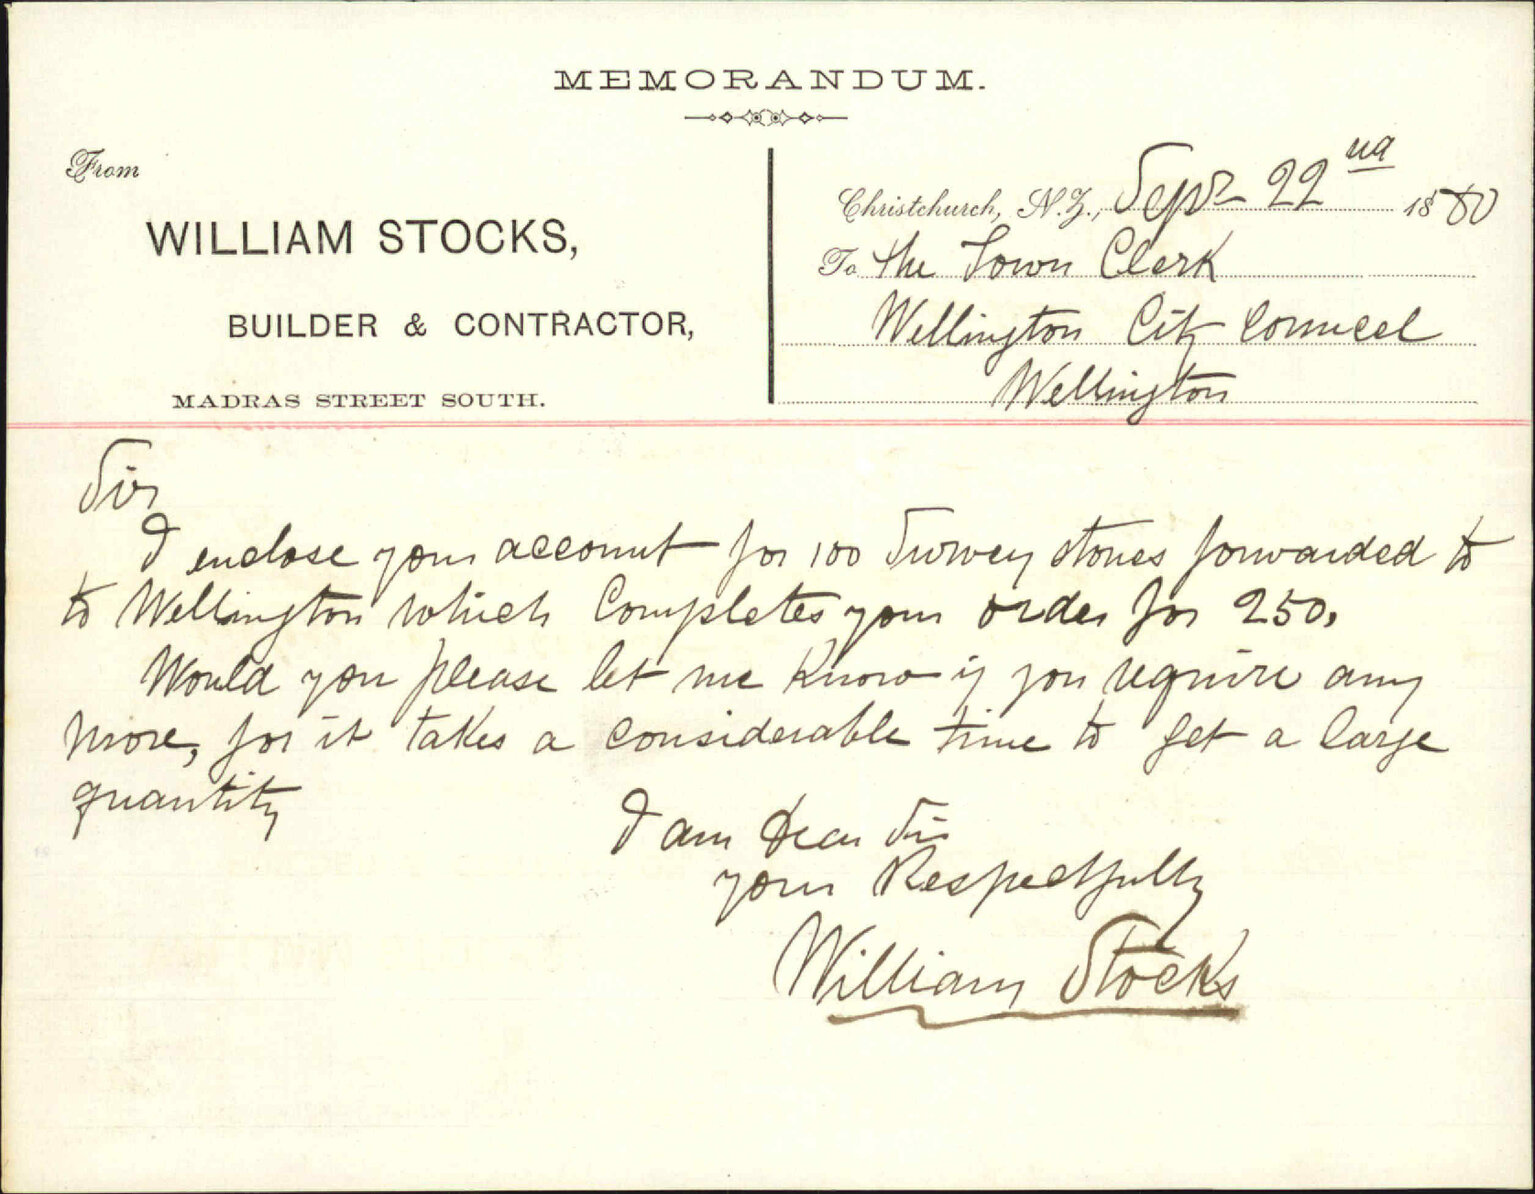 MEMORANDUM.
From
WILLIAM STOCKS,
BUILDER & CONTRACTOR,
MADRAS STREET SOUTH.
Christchurch, N.Z., Sepr 22nd 1880
To the Town Clerk
Wellington City Council
Wellington
Sir
I enclose your account for 100 Survey stones forwarded to
to Wellington which Completes your order for 250.
Would you please let me know if you require any
more, for it takes a considerable time to get a large
quantity
I am Dear Sir
your Respectfully
William Stocks